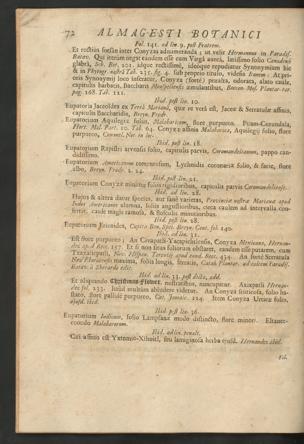 72 ALMAGESTI BOTANICI
Fol. 141. ad lin. 9. post Fratrem.
Et rectius forsan inter Conyzas adnumeranda; ut velit Hermannus in Paradis.
Batav. Qui iterum negat eandem esse cum Virgâ aureâ, latissimo folio Canadensi
glabrâ, Sch. Bot. 201. idque rectissimè, ideoque repudietur Synonymum hic
& in Phytogr. nostrâ Tab. 235. fig. 4. sub proprio titulo, videsis Bonum: At prioris
Synonymi loco inseratur, Conyza (fortè) prealta, odorata, alato caule,
capitulis barbatis, Baccharis Monspeliensis æmulantibus, Boccon Mus. Plantar. rar.
pag. 168. Tab. 121.
Ibid. post lin. 10.
Eupatoria Jaceoïdes ex Terrâ Marianâ, quæ re verâ est, Jaceæ & Serratulæ affinis,
capitulis Baccharidis, Breyn. Prodr.
Eupatorium Aquilegiæ foliis, Malabaricum, flore purpureo. Puam-Curundala,
Hort. Mal. Part. 10. Tab. 64. Conyza affinis Malabarica, Aquilegiæ folio, flore
purpureo, Commel. Not. in loc.
Ibid. post lin. 18.
Eupatorium Rapistri arvensis folio, capitulis parvis, Coromandelianum, pappo candidissimo.
Eupatorium Americanum tomentosum, Lychnidis coronariæ folio, & facie, flore
albo, Breyn. Prodr. 2. 24.
Ibid. post lin. 21.
Eupatorium Conyzæ minimæ foliis rigidioribus, capitulis parvis Coromandeliense.
Ibid. ad lin. 28.
Hujus & altera datur species, aut sané varietas, Provinciæ nostræ Marianæ apud
Indos Americanos alumna, foliis angustioribus, circa caulem ad intervalla confertis,
caule magis ramoso, & flosculis minutioribus.
Ibid. post lin. 28.
Eupatorium Jovinides, Capitis Bon. Spei. Breyn. Cent. fol. 140.
Ibid. ad lin. 31.
Est flore purpureo; An Civapatli-Yacapichtlensis, Conyza Mexicana, Hernandez
apud Recc. 157. Et si non situs foliorum obstaret, eandem esse putarem, cum
Tzotzalicpatli, Nov. Hispan. Terentii apud eund. Recc. 434. An fortè Serratula
Nov Eboracensis maxima, foliis longis, serratis, Catal. Plantar. ad calcem Paradis.
Batav. à Sherardo edit.
Ibid. ad lin. 33. post dicta, add.
Et aliquando Christmas Flower, nostratibus, nuncupatur. Axixpatli Hernandez
fol. 233. huic multùm abludere videtur. An Conyza fruticosa, folio hastato,
flore pallidè purpureo, Cat. Jamaic. 124. Item Conyza Urticæ folio,
ejusd.
Ibid. post lin. 36.
Eupatorium Indicum, folio Lampsanæ modo dissecto, flore minori. Elantecoondo
Malabarorum.
Ibid. ad lin. penult.
Cui affinis est Yxtenvo-Xihuitl, seu lanuginosa herba ejusd. Hernandez ibid.
Fol.